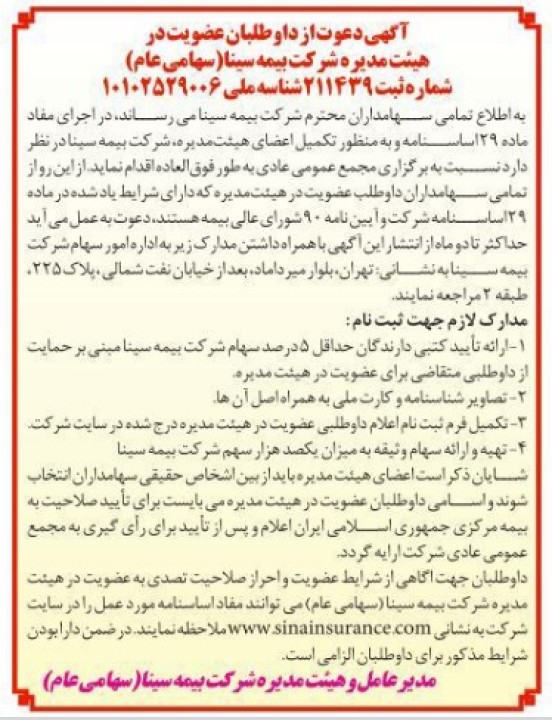 آگهی دعوت از داوطلبان عضویت در
هیئت مدیره شرکت بیمه سینا (سهامی عام)
شماره ثبت ۲۱۱۴۳۹ شناسه ملی ۱۰۱۰۲۵۲۹۰۰۶
به اطلاع تمامی سهامداران محترم شرکت بیمه سینا می رساند، در اجرای مفاد
ماده ۲۹ اساسنامه و به منظور تکمیل اعضای هیئت‌مدیره، شرکت بیمه سینا در نظر
دارد نسبت به برگزاری مجمع عمومی عادی به طور فوق‌العاده اقدام نماید. از این رو از
تمامی سهامداران داوطلب عضویت در هیئت‌مدیره که دارای شرایط یاد شده در ماده
۲۹ اساسنامه شرکت و آیین نامه ۹۰ شورای عالی بیمه هستند، دعوت به عمل می آید
حداکثر تا دو ماه از انتشار این آگهی با همراه داشتن مدارک زیر به اداره امور سهام شرکت
بیمه سینا به نشانی: تهران، بلوار میرداماد، بعد از خیابان نفت شمالی، پلاک ۲۲۵،
طبقه ۲ مراجعه نمایند.
مدارک لازم جهت ثبت نام:
۱-ارائه تأیید کتبی دارندگان حداقل ۵ درصد سهام شرکت بیمه سینا مبنی بر حمایت
از داوطلبی متقاضی برای عضویت در هیئت مدیره.
۲- تصاویر شناسنامه و کارت ملی به همراه اصل آن ها.
۳- تکمیل فرم ثبت نام اعلام داوطلبی عضویت در هیئت مدیره درج شده در سایت شرکت.
۴- تهیه و ارائه سهام وثیقه به میزان یکصد هزار سهم شرکت بیمه سینا
شایان ذکر است اعضای هیئت مدیره باید از بین اشخاص حقیقی سهامداران انتخاب
شوند و اسامی داوطلبان عضویت در هیئت مدیره می بایست برای تأیید صلاحیت به
بیمه مرکزی جمهوری اسلامی ایران اعلام و پس از تأیید برای رأی گیری به مجمع
عمومی عادی شرکت ارایه گردد.
داوطلبان جهت آگاهی از شرایط عضویت و احراز صلاحیت تصدی به عضویت در هیئت
مدیره شرکت بیمه سینا (سهامی عام) می توانند مفاد اساسنامه مورد عمل را در سایت
شرکت به نشانی www.sinainsurance.com ملاحظه نمایند. در ضمن دارا بودن
شرایط مذکور برای داوطلبان الزامی است.
مدیر عامل و هیئت مدیره شرکت بیمه سینا (سهامی عام)